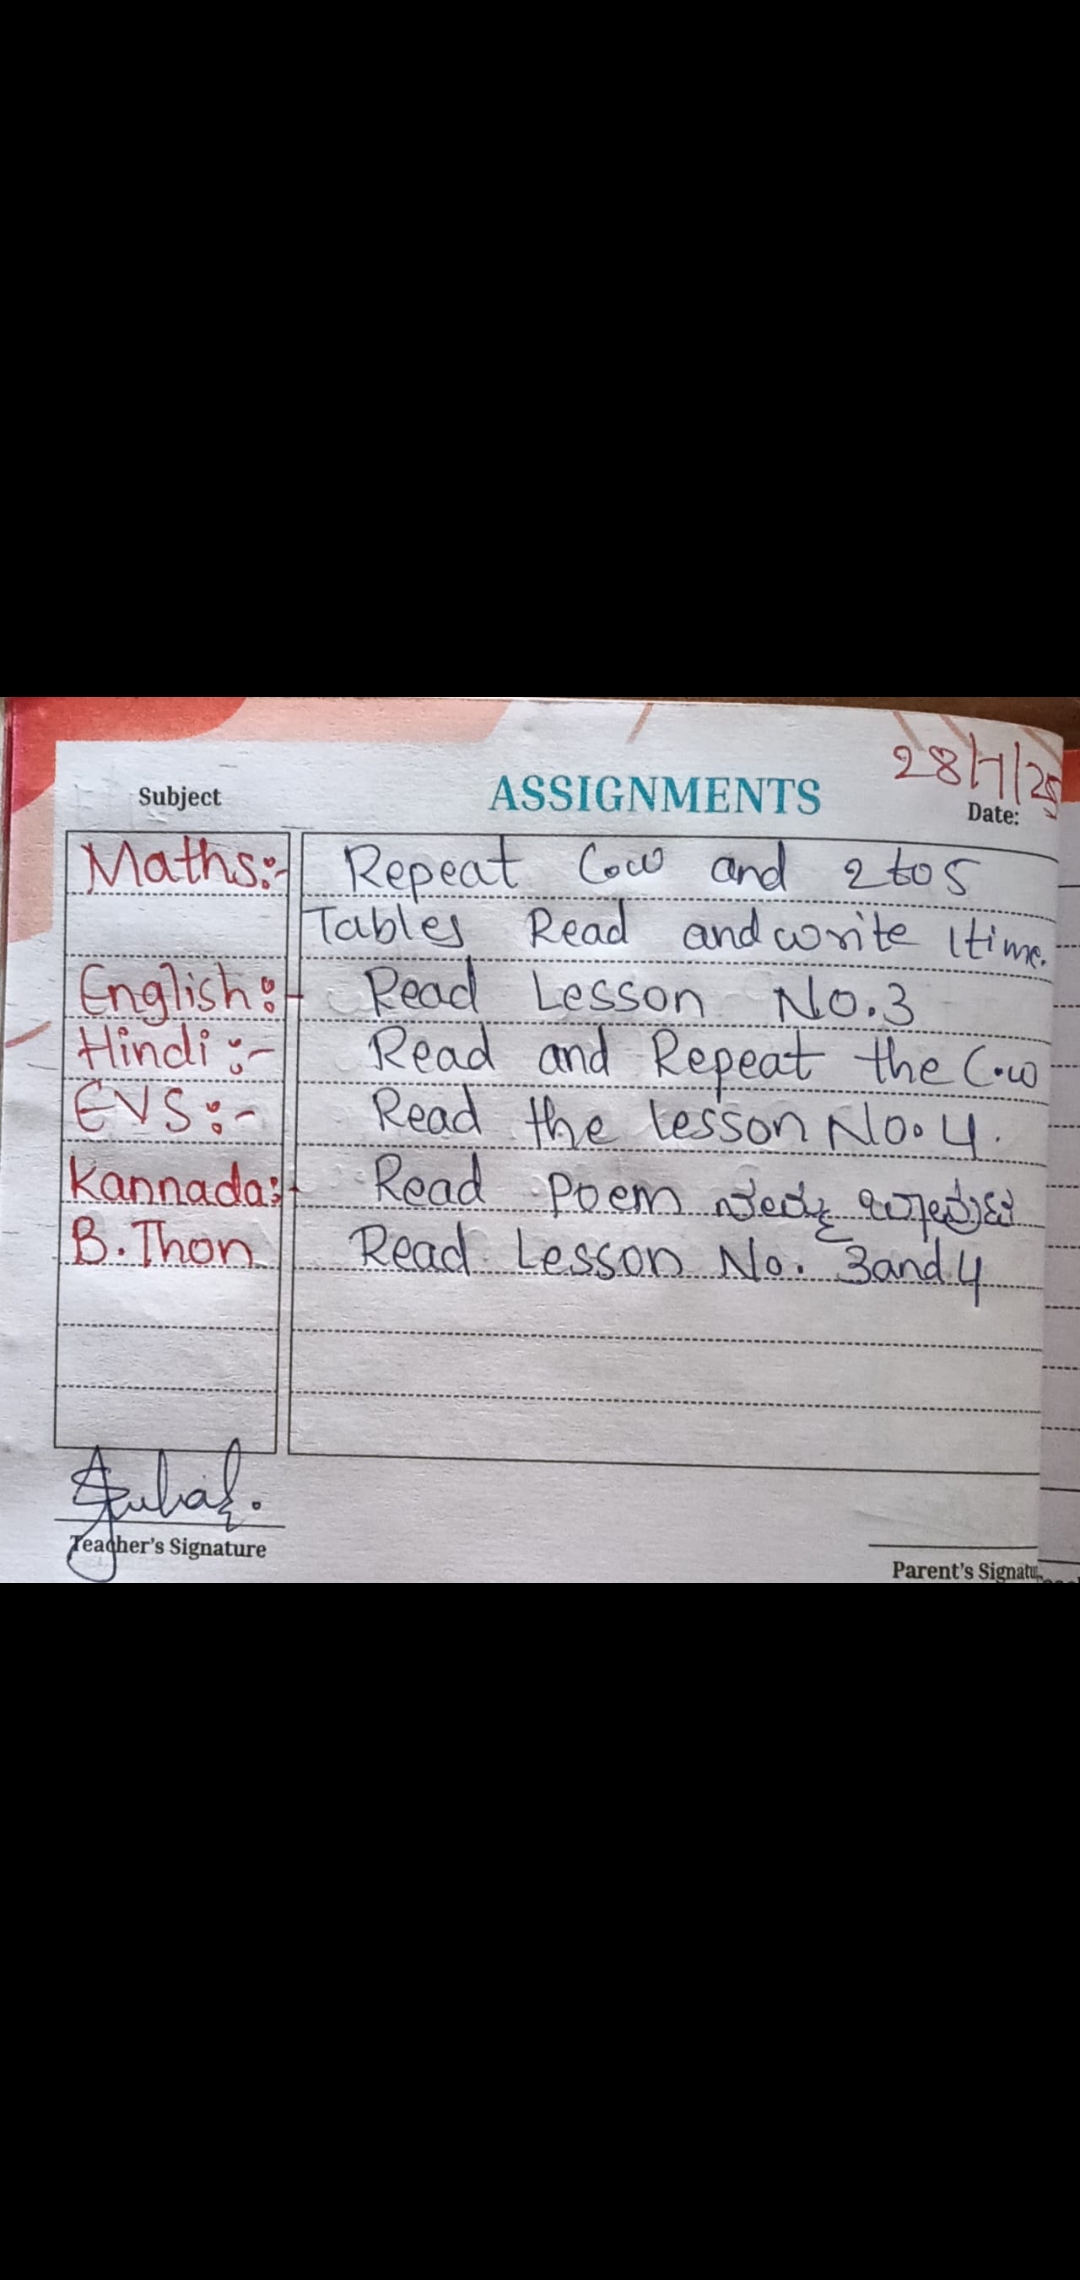 28/7/25
Subject ASSIGNMENTS Date:
Maths:- Repeat C.w and 2 to 5
Tables Read and write 1 time.
English:- Read Lesson No.3
Hindi:- Read and Repeat the C.w
EVS:- Read the lesson No.4.
Kannada:- Read Poem
B.Thon Read Lesson No. 3 and 4
Teacher's Signature
Parent's Signatu